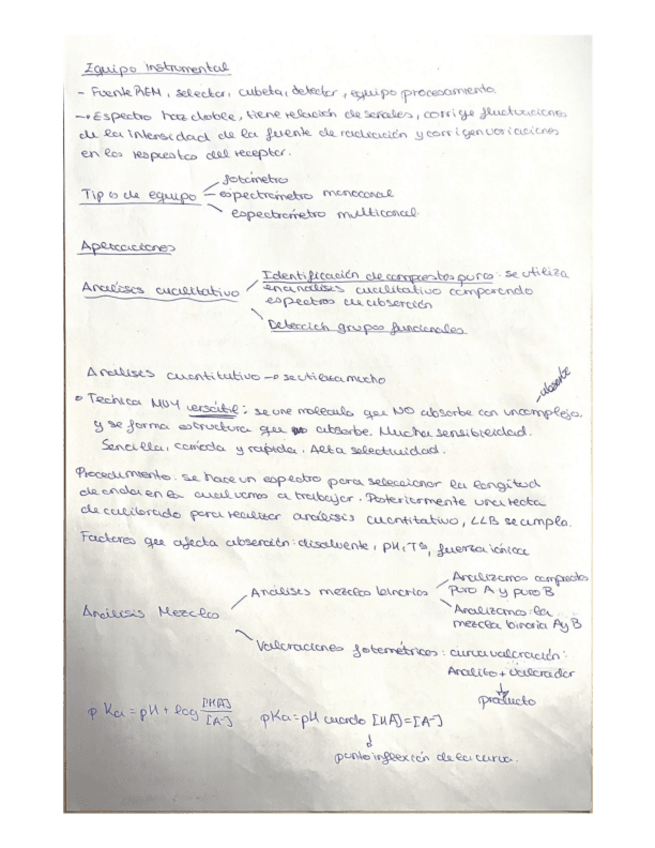 Equipo instrumental
- Fuente REM, selector, cubeta, detector, equipo procesamiento.
→ Espectro haz doble, tiene relación de señales, corrige fluctuaciones
de la intensidad de la fuente de radiación y corrigen variaciones
en las respuestas del receptor.
fotómetro
Tipos de equipo - espectrómetro monocanal
espectrómetro multicanal
Aplicaciones
Identificación de compuestos puros: se utiliza
Análisis cualitativo en análisis cualitativo comparando
espectros de absorción
Detección grupos funcionales
Análisis cuantitativo → se utiliza mucho
absorbe
• Técnica MUY versátil: se une molécula que NO absorbe con un complejo,
y se forma estructura que absorbe. Mucha sensibilidad.
Sencilla, cómoda y rápida. Alta selectividad.
Procedimiento: se hace un espectro para seleccionar la longitud
de onda en la cual vamos a trabajar. Posteriormente una recta
de calibrado para realizar análisis cuantitativo, LLB se cumpla.
Factores que afecta absorción: disolvente, pH, Tª, fuerza iónica
Análisis mezclas binarias
Analizamos compuestos
puro A y puro B
Análisis Mezclas
Analizamos la
mezcla binaria A y B
Valoraciones fotométricas: curva valoración:
Analito + valorador
↓
producto
pKa = pH + log [HA]/[A-] pKa = pH cuando [HA] = [A-]
↓
punto inflexión de la curva.